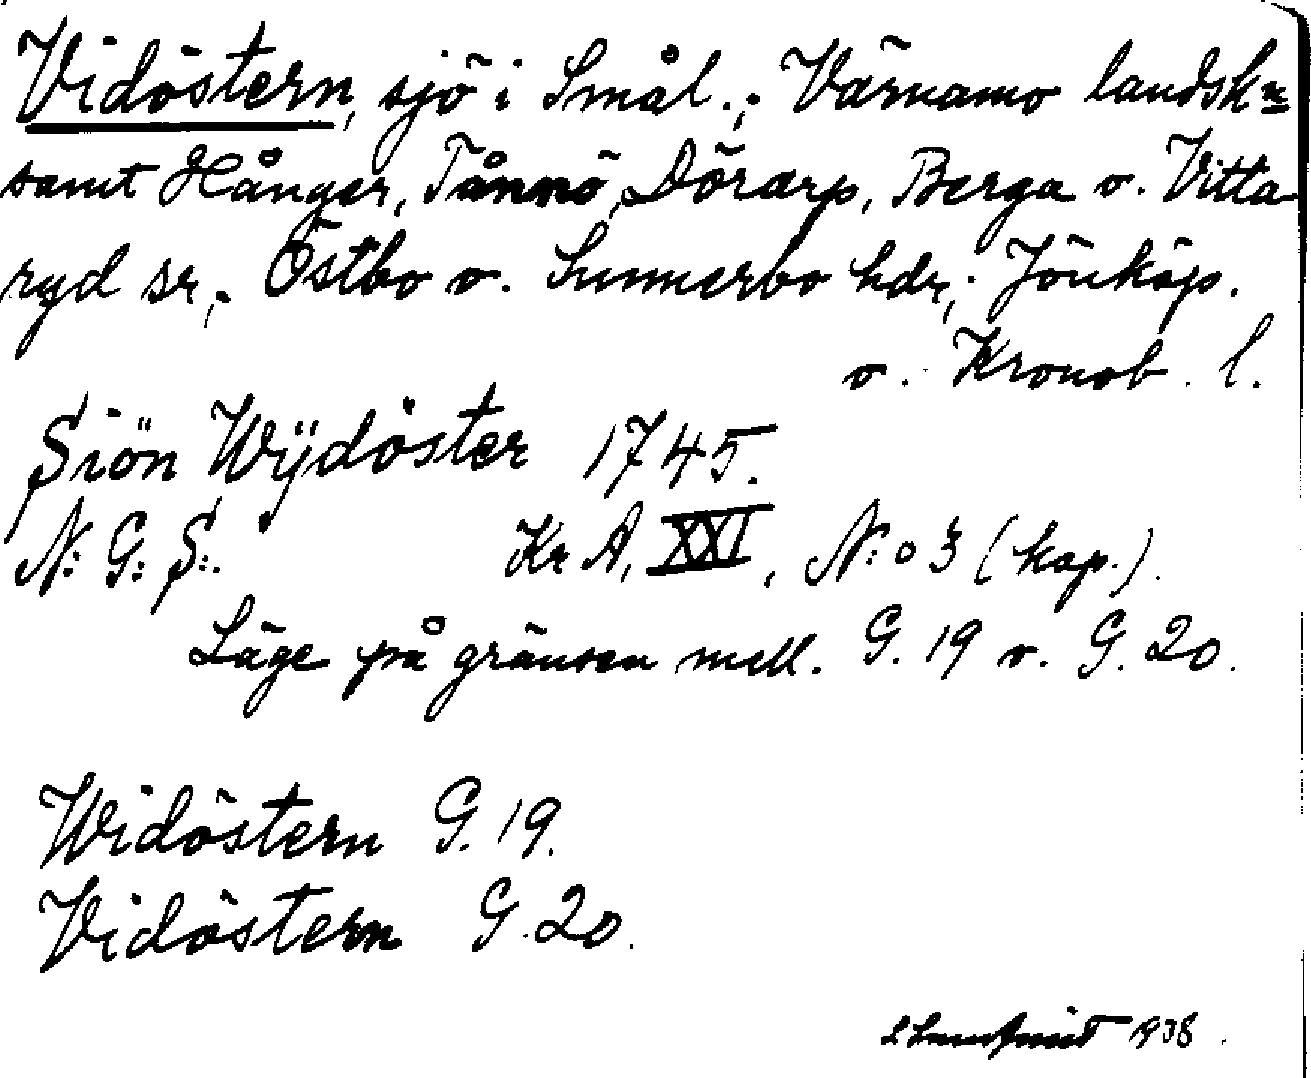 Vidöstern, sjö i Smål.; Värnamo landskn
samt Hånger, Tånnö, Dörarp, Berga o. Vitta-
ryd sr.; Östbo o. Sunnerbo hdr.; Jönköp.
o. Kronob. l.
Siön Wÿdöster 1745.
N: G: S:. Kr A, XXI, N:o 3 (kop.).
Läge på gränsen mell. G. 19 o. G. 20.
Widöstern G. 19.
Vidöstern G. 20.
1938.